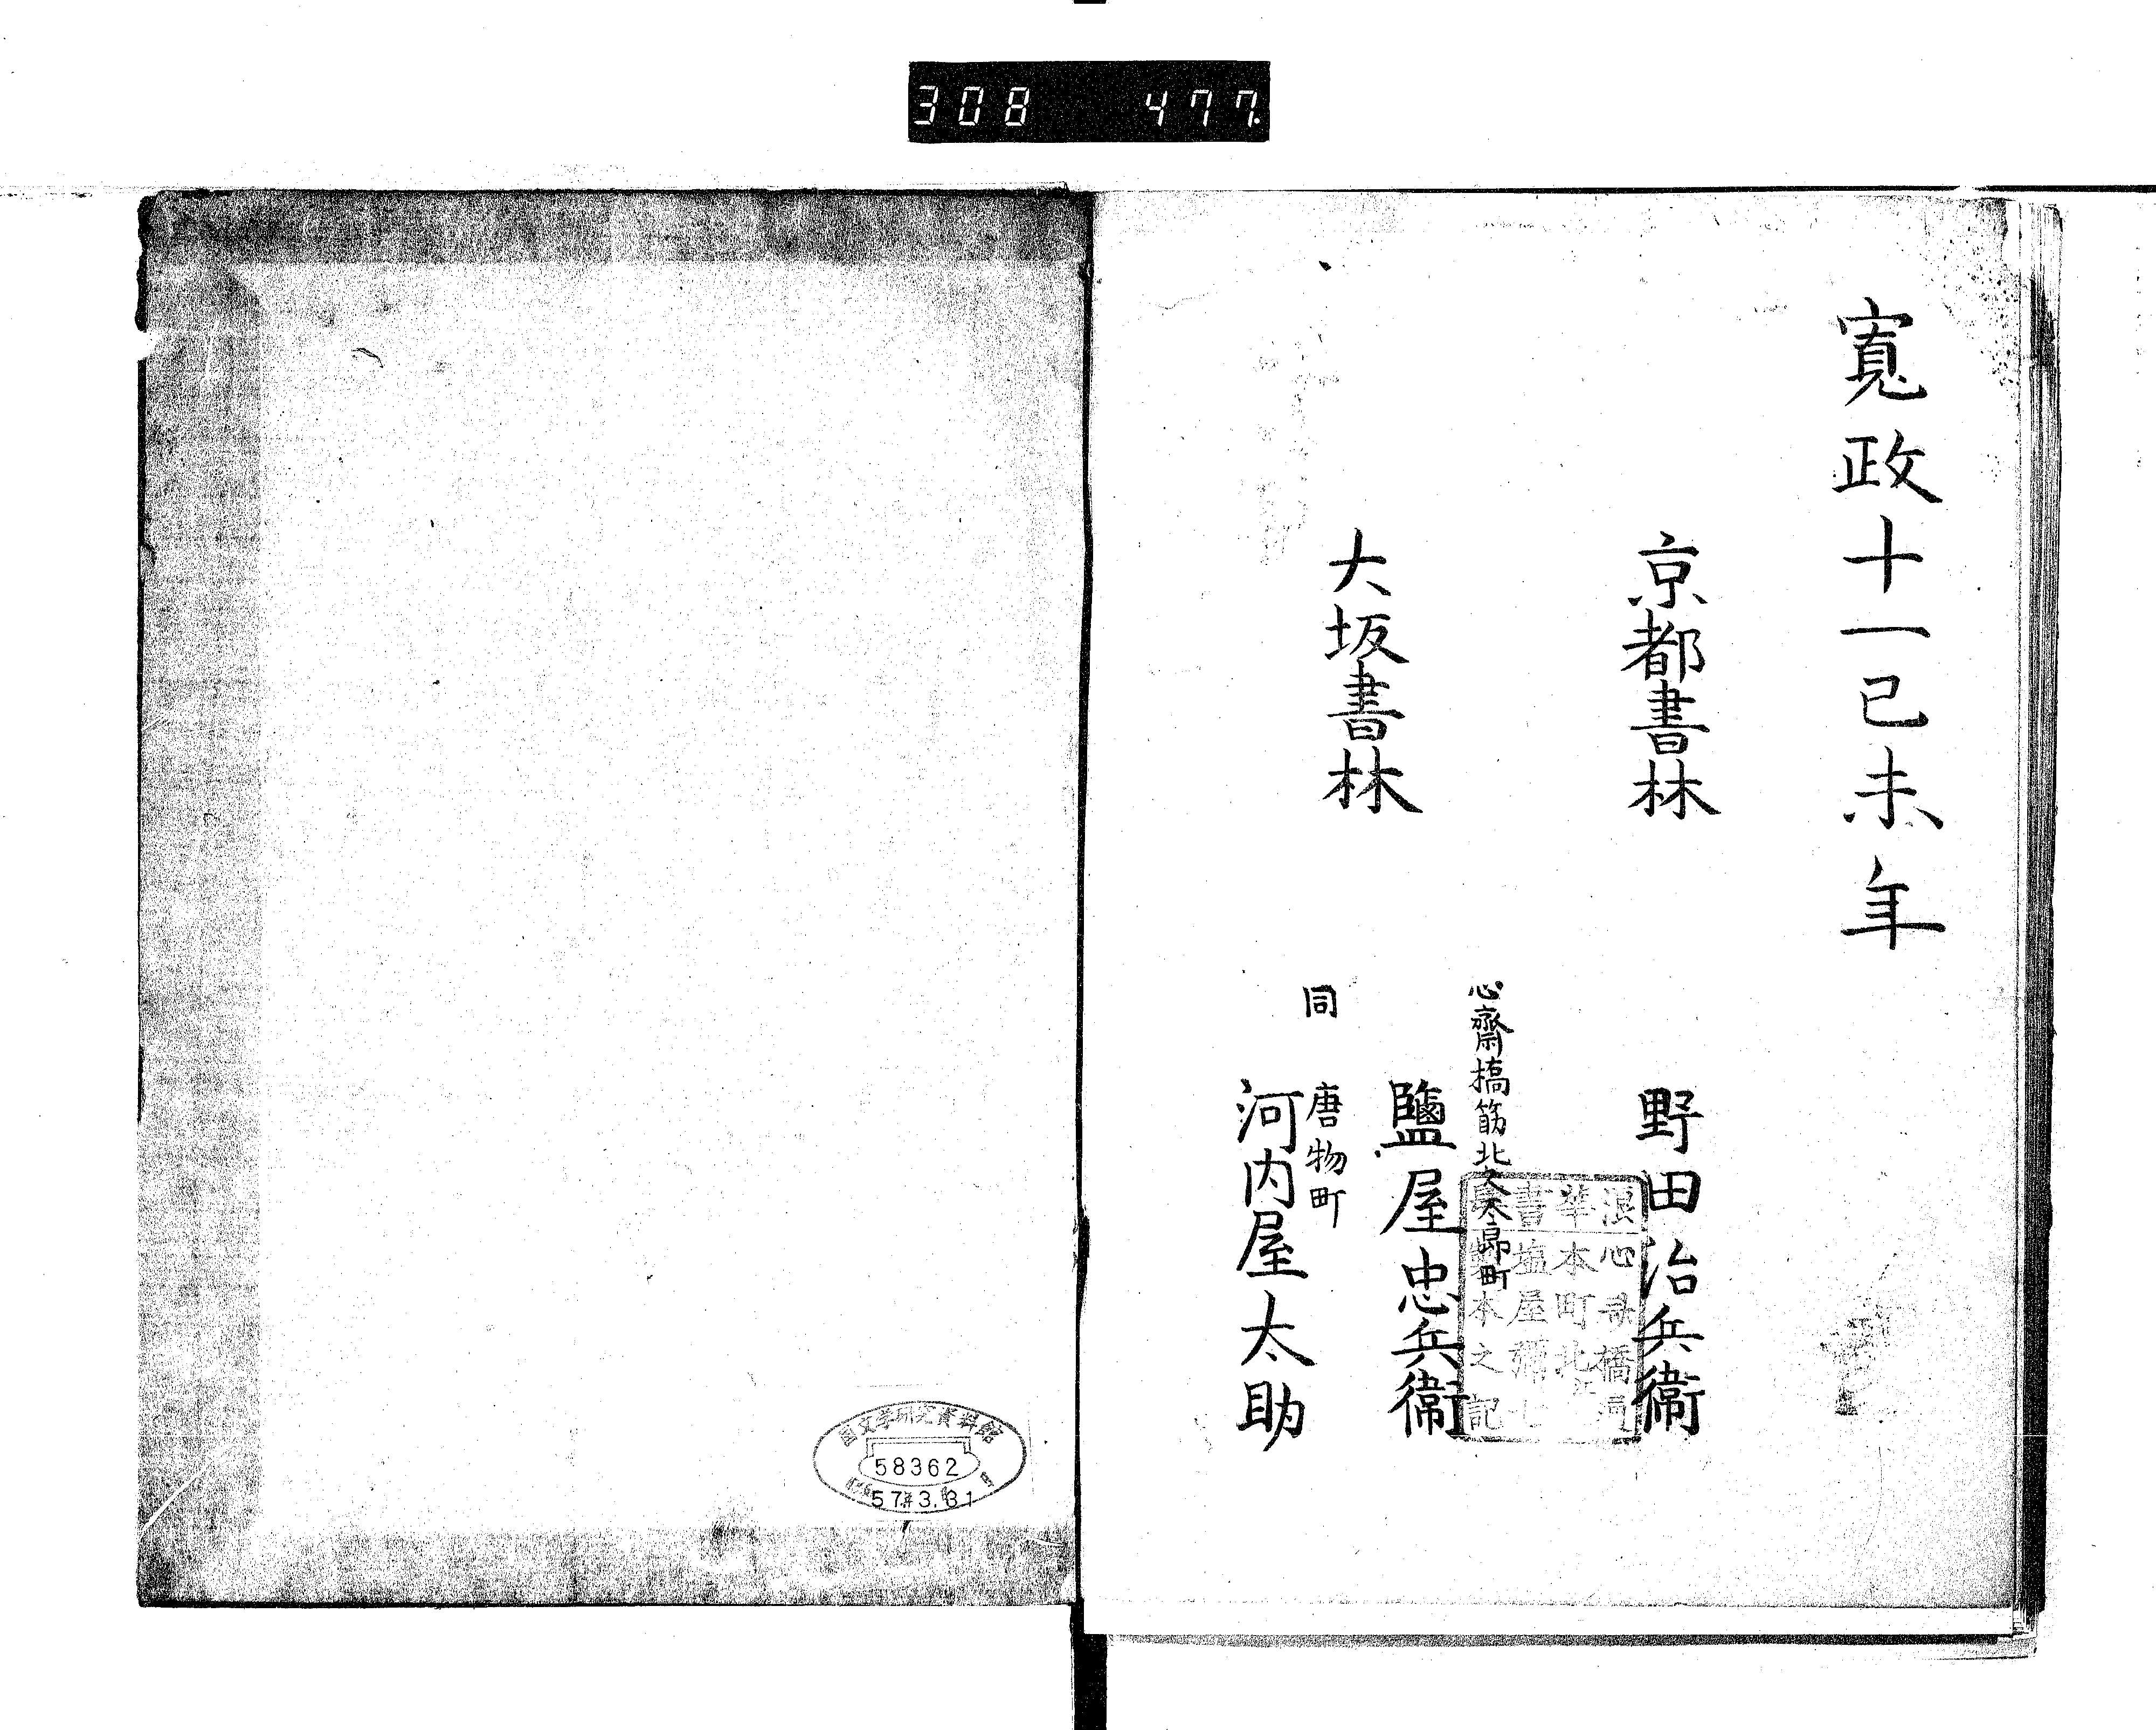 308 477.
寛政十一己未年
京都書林
野田治兵衞
心齋橋筋北久太郎町
大坂書林
鹽屋忠兵衞
同 唐物町
河内屋太助
浪 心斎橋通
華 本町北
書 塩屋彌七
製本之記
国文学研究資料館
58362
57年3.31